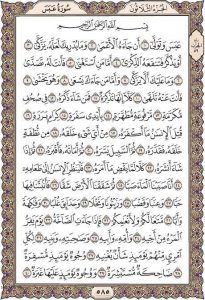 الجزء الثلاثون سورة عبس
بسم الله الرحمن الرحيم
عَبَسَ وَتَوَلَّىٰ ۝١ أَن جَاءَهُ الْأَعْمَىٰ ۝٢ وَمَا يُدْرِيكَ لَعَلَّهُ يَزَّكَّىٰ ۝٣
أَوْ يَذَّكَّرُ فَتَنفَعَهُ الذِّكْرَىٰ ۝٤ أَمَّا مَنِ اسْتَغْنَىٰ ۝٥ فَأَنتَ لَهُ تَصَدَّىٰ ۝٦
وَمَا عَلَيْكَ أَلَّا يَزَّكَّىٰ ۝٧ وَأَمَّا مَن جَاءَكَ يَسْعَىٰ ۝٨ وَهُوَ يَخْشَىٰ ۝٩
فَأَنتَ عَنْهُ تَلَهَّىٰ ۝١٠ كَلَّا إِنَّهَا تَذْكِرَةٌ ۝١١ فَمَن شَاءَ ذَكَرَهُ ۝١٢ فِي صُحُفٍ
مُّكَرَّمَةٍ ۝١٣ مَّرْفُوعَةٍ مُّطَهَّرَةٍ ۝١٤ بِأَيْدِي سَفَرَةٍ ۝١٥ كِرَامٍ بَرَرَةٍ ۝١٦ قُتِلَ
الْإِنسَانُ مَا أَكْفَرَهُ ۝١٧ مِنْ أَيِّ شَيْءٍ خَلَقَهُ ۝١٨ مِن نُّطْفَةٍ خَلَقَهُ
فَقَدَّرَهُ ۝١٩ ثُمَّ السَّبِيلَ يَسَّرَهُ ۝٢٠ ثُمَّ أَمَاتَهُ فَأَقْبَرَهُ ۝٢١ ثُمَّ إِذَا
شَاءَ أَنشَرَهُ ۝٢٢ كَلَّا لَمَّا يَقْضِ مَا أَمَرَهُ ۝٢٣ فَلْيَنظُرِ الْإِنسَانُ إِلَىٰ طَعَامِهِ
۝٢٤ أَنَّا صَبَبْنَا الْمَاءَ صَبًّا ۝٢٥ ثُمَّ شَقَقْنَا الْأَرْضَ شَقًّا ۝٢٦ فَأَنبَتْنَا فِيهَا
حَبًّا ۝٢٧ وَعِنَبًا وَقَضْبًا ۝٢٨ وَزَيْتُونًا وَنَخْلًا ۝٢٩ وَحَدَائِقَ غُلْبًا ۝٣٠ وَفَاكِهَةً
وَأَبًّا ۝٣١ مَّتَاعًا لَّكُمْ وَلِأَنْعَامِكُمْ ۝٣٢ فَإِذَا جَاءَتِ الصَّاخَّةُ ۝٣٣ يَوْمَ يَفِرُّ
الْمَرْءُ مِنْ أَخِيهِ ۝٣٤ وَأُمِّهِ وَأَبِيهِ ۝٣٥ وَصَاحِبَتِهِ وَبَنِيهِ ۝٣٦ لِكُلِّ امْرِئٍ
مِّنْهُمْ يَوْمَئِذٍ شَأْنٌ يُغْنِيهِ ۝٣٧ وُجُوهٌ يَوْمَئِذٍ مُّسْفِرَةٌ
۝٣٨ ضَاحِكَةٌ مُّسْتَبْشِرَةٌ ۝٣٩ وَوُجُوهٌ يَوْمَئِذٍ عَلَيْهَا غَبَرَةٌ ۝٤٠
٥٨٥